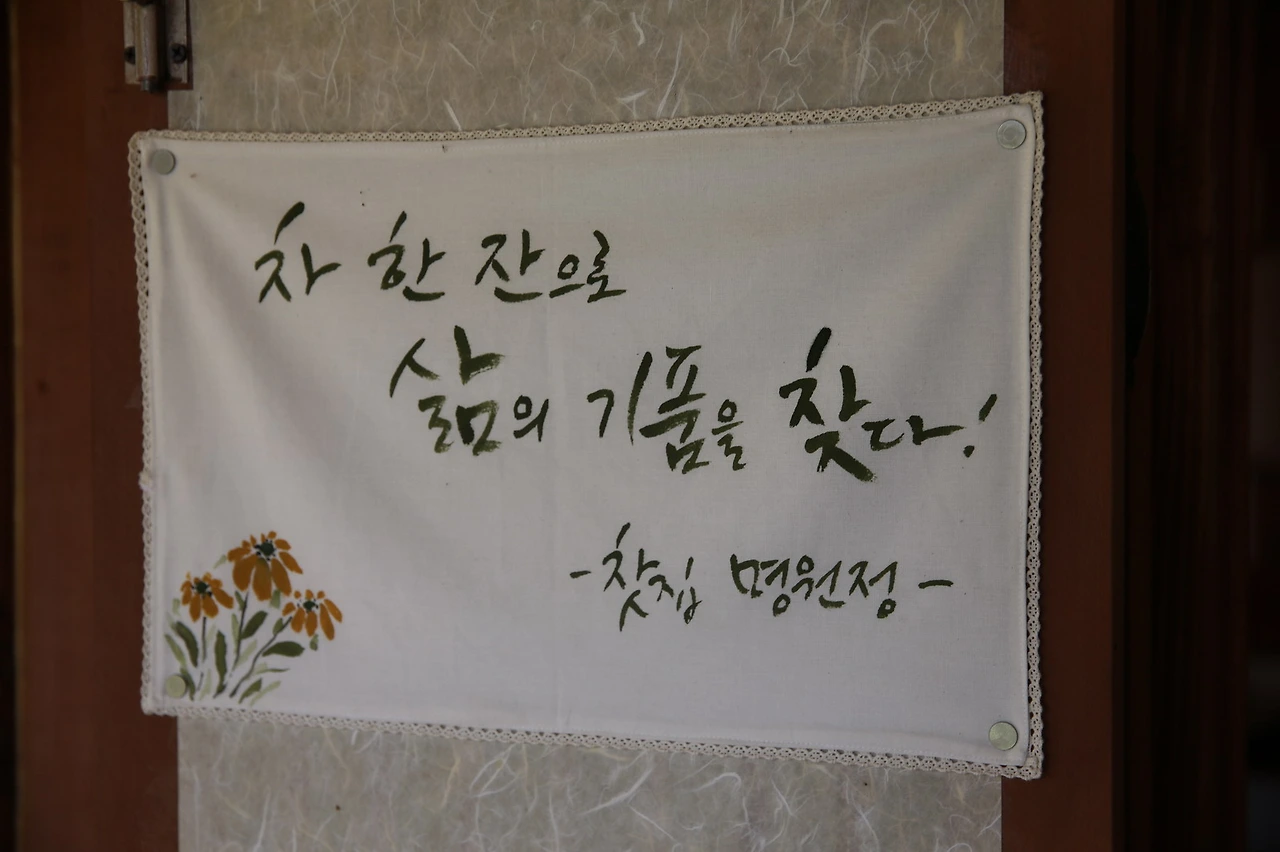 차 한 잔으로
삶의 기품을 찾다!
-찻집 명원정-